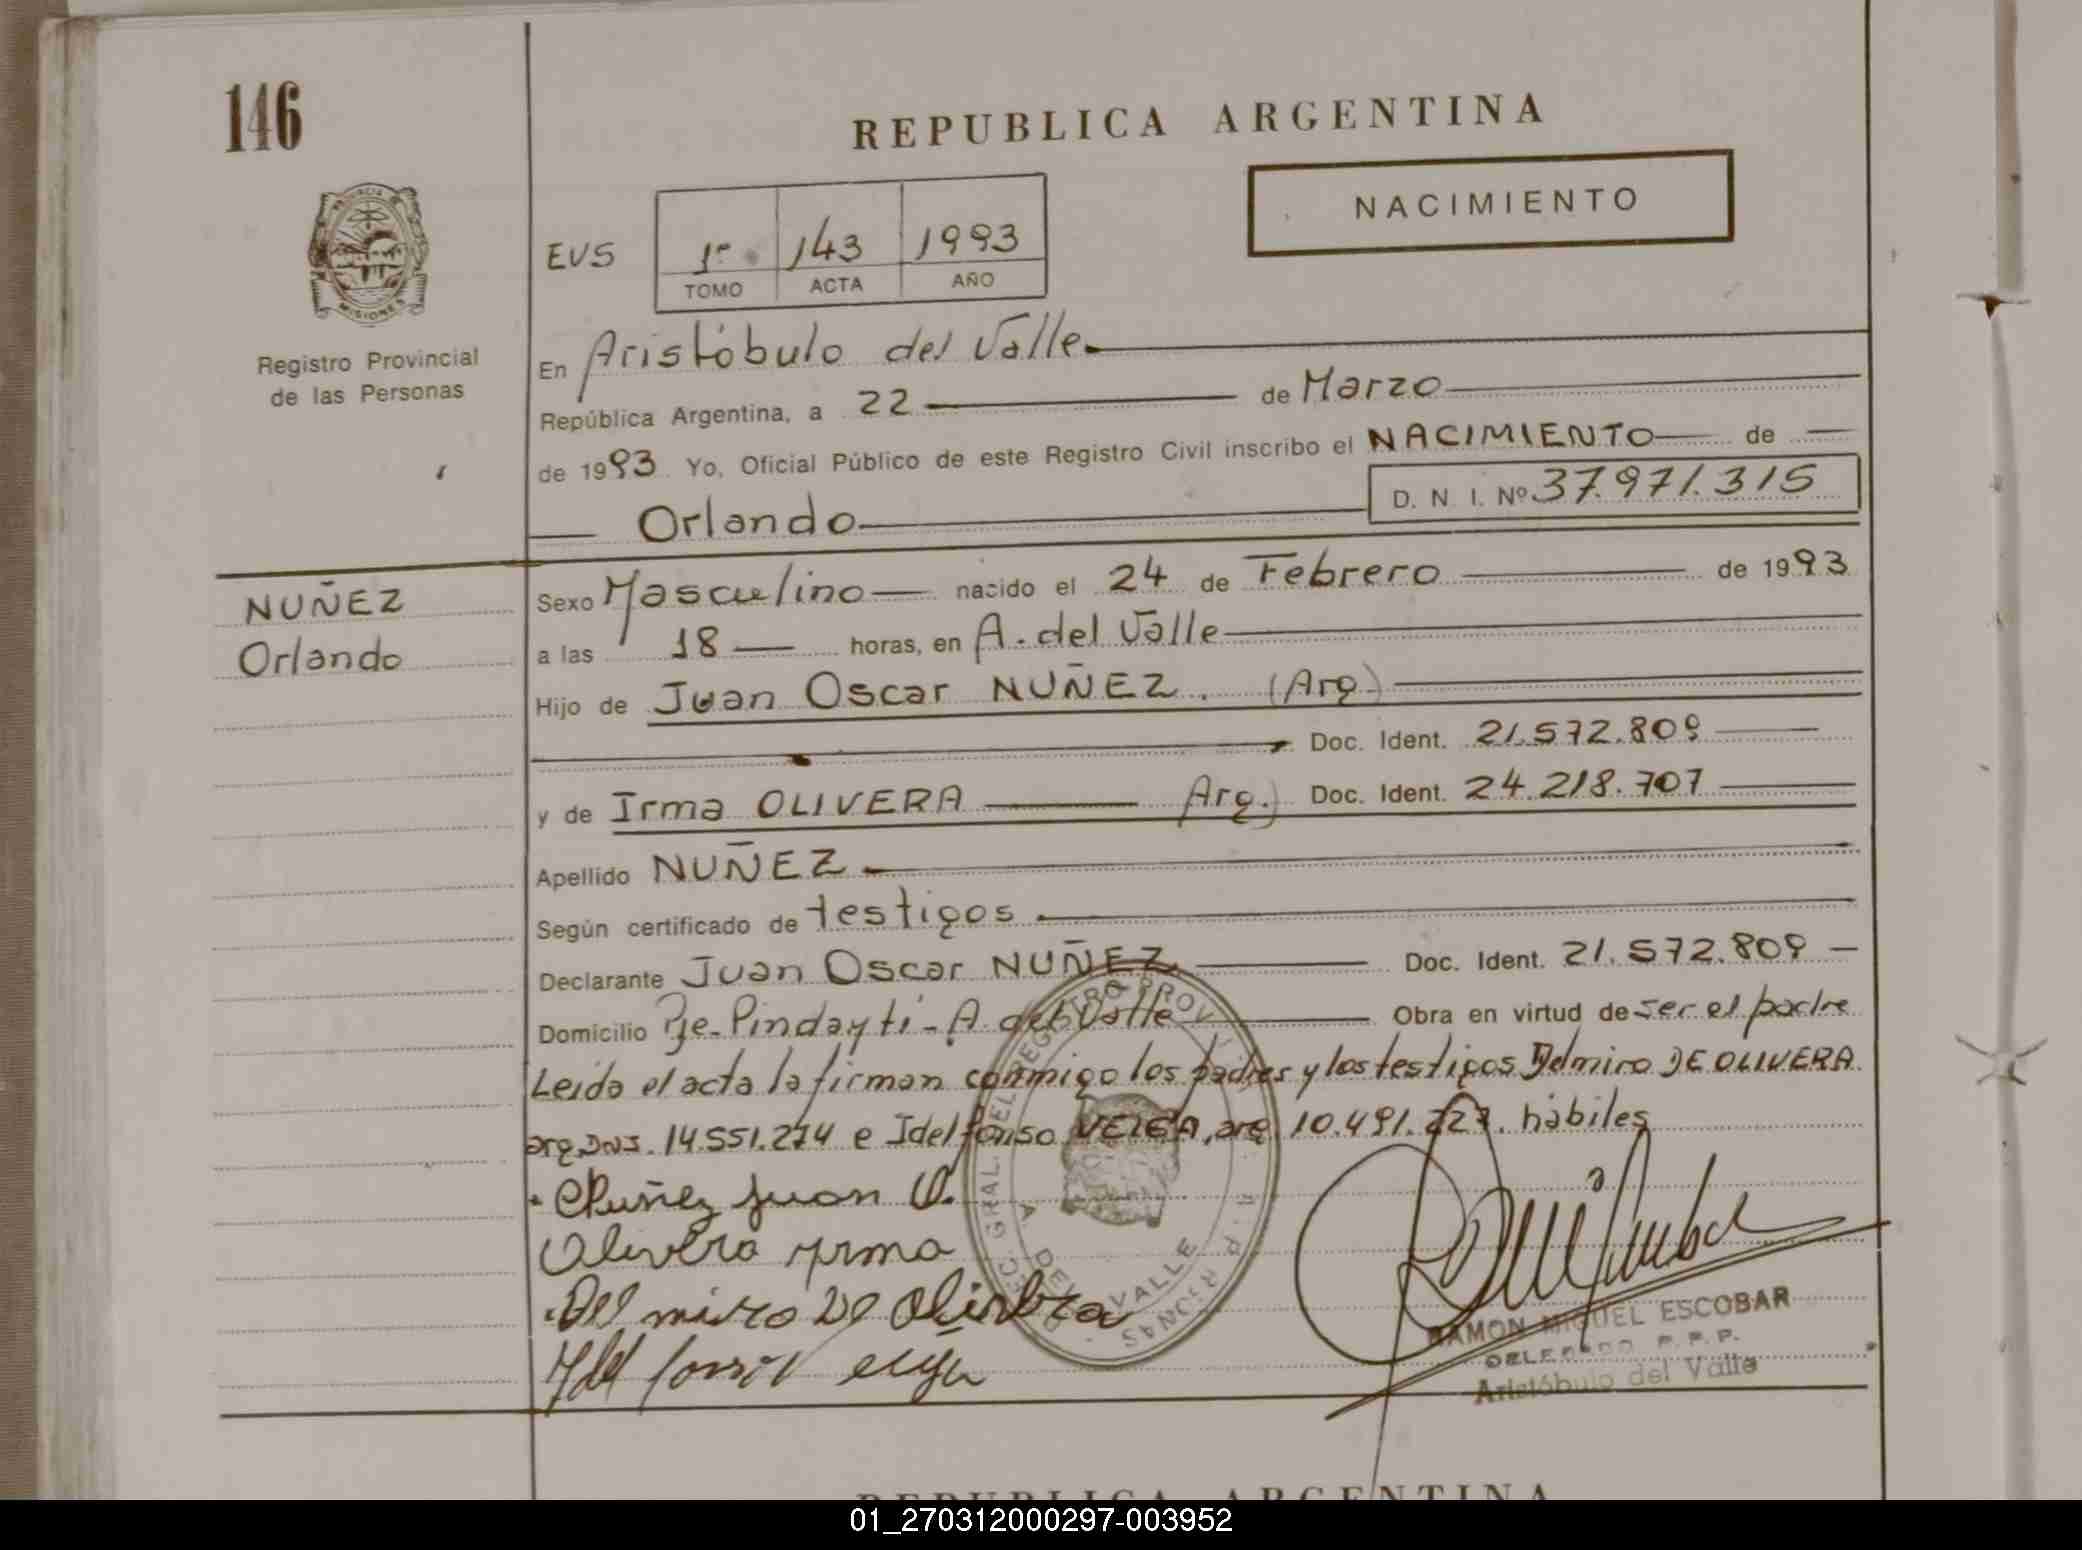 146
REPUBLICA ARGENTINA
NACIMIENTO
PROVINCIA
MISIONES
EVS
1º 143 1993
TOMO ACTA AÑO
Registro Provincial
de las Personas
En Aristóbulo del Valle
República Argentina, a 22 de Marzo
de 1993 Yo, Oficial Público de este Registro Civil inscribo el NACIMIENTO de
D. N. I. Nº 37.971.315
Orlando
NUÑEZ
Orlando
Sexo Masculino nacido el 24 de Febrero de 1993
a las 18 horas, en A. del Valle
Hijo de Juan Oscar NUÑEZ. (Arg)
Doc. Ident. 21.572.809
y de Irma OLIVERA Arg.) Doc. Ident. 24.218.707
Apellido NUÑEZ
Según certificado de testigos
Declarante Juan Oscar NUÑEZ Doc. Ident. 21.572.809
Domicilio Pje. Pindayti - A. del Valle Obra en virtud de ser el padre
Leida el acta la firman conmigo los padres y los testigos Delmiro DE OLIVERA
arg. DNI. 14.551.274 e Idelfonso VEIGA, arg 10.491.227. hábiles
Nuñez Juan O.
Olivera Yrma
Delmiro de Olivera
Ydelfonso Veiga
DEL VALLE
RAMON MIGUEL ESCOBAR
DELEGADO R.P.P.
Aristóbulo del Valle
REPUBLICA ARGENTINA
01_270312000297-003952